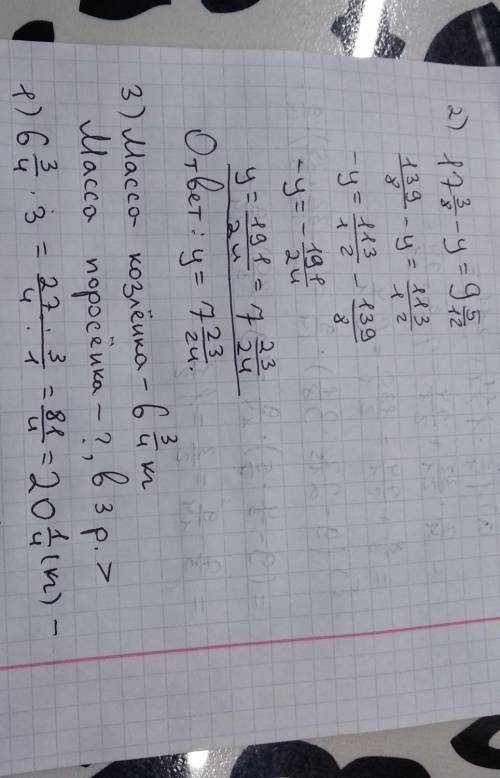 2) 17 3/8 - y = 9 5/12
139/8 - y = 113/12
-y = 113/12 - 139/8
-y = - 191/24
y = 191/24 = 7 23/24
Ответ: y = 7 23/24.
3) Масса козлёнка - 6 3/4 кг
Масса поросёнка - ?, в 3 р. >
1) 6 3/4 · 3 = 27/4 · 3/1 = 81/4 = 20 1/4 (кг) -